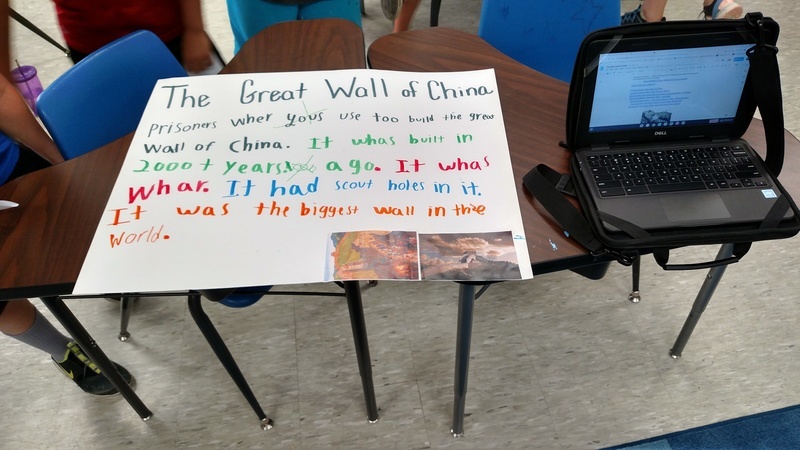 The Great Wall of China
Prisoners wher yous use too build the great
Wall of China. It whas built in
2000 + years ago. It whas
whar. It had scout holes in it.
It was the biggest wall in thie
World.
DELL